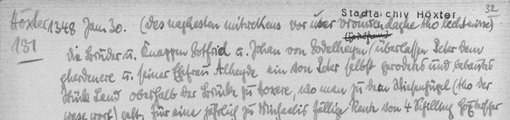 Stadtarchiv Höxter 32
Höxter 1348 Jan. 30. (des neghesten mitwekens vor user vrouwen daghe tho lechtmisse)
131 die Brüder u. Knappen Gotfrid u. Johan von Godelheym überlassen Peter dem
gherdenere u. seiner Ehefrau Alheyde ein von Peter selbst gerodetes und gebautes
Stück Land oberhalb der Brücke zu Hoxere, wo man zu dem Wiesenflügel (tho der
wese wort) geht, für eine jährlich zu Michaelis fällige Rente von 4 Schilling